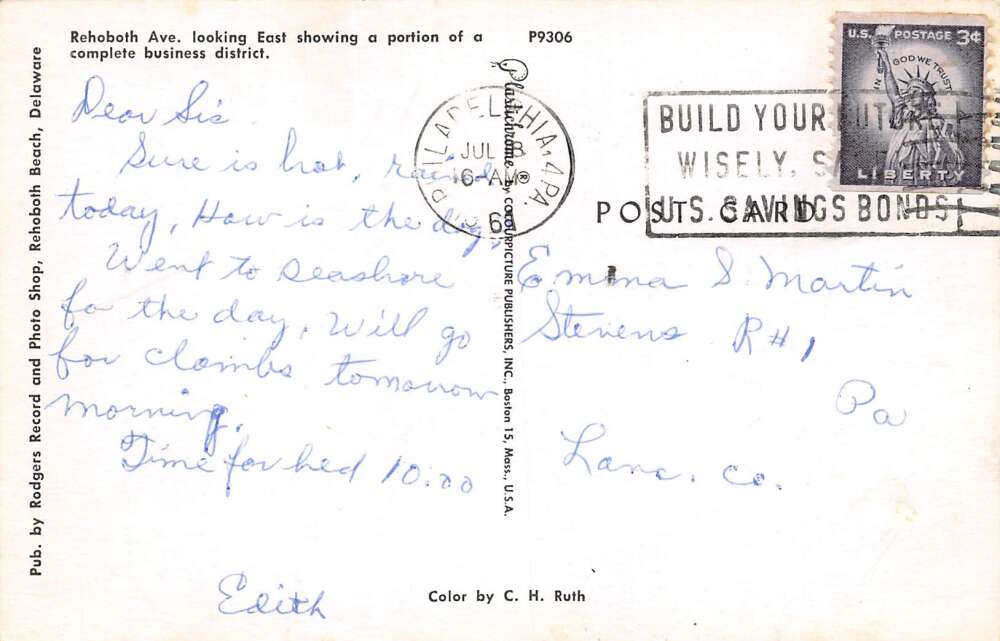 Rehoboth Ave. looking East showing a portion of a
complete business district.
P9306
Pub. by Rodgers Record and Photo Shop, Rehoboth Beach, Delaware
Dear Sis
Sure is hot, rained
today, How is the dog,
Went to seashore
fo the day, Will go
for clambs tomorrow
morning.
Time for bed 10:00
Edith
Plastichrome ® by COLOURPICTURE PUBLISHERS, INC., Boston 15, Mass., U.S.A.
PHILADELPHIA, PA.
JUL
6-AM
BUILD YOUR FUTURE
WISELY, SAFELY
U.S. SAVINGS BONDS
U.S. POSTAGE 3¢
IN GOD WE TRUST
LIBERTY
POST CARD
Emma S. Martin
Stevens R#1
Pa
Lanc. Co.
Color by C. H. Ruth